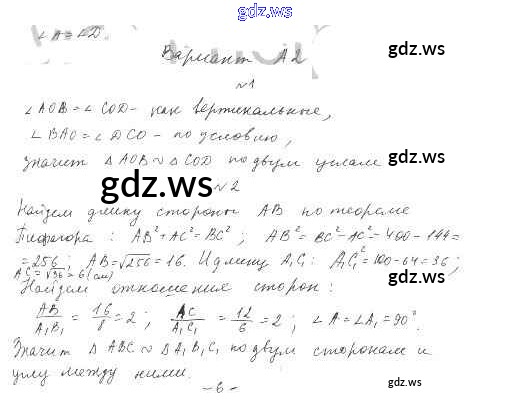 gdz.ws
∠A = ∠D
gdz.ws
Вариант А2
№1
∠AOB = ∠COD - как вертикальные,
∠BAO = ∠DCO - по условию,
значит △AOB ∾ △COD по двум углам
gdz.ws
gdz.ws
№2
Найдем длину стороны AB по теореме
Пифагора : AB² + AC² = BC² ; AB² = BC² - AC² = 400 - 144 =
= 256 ; AB = √256 = 16. И длину A₁C₁ : A₁C₁² = 100 - 64 = 36 ;
AC = √36 = 6 (см)
gdz.ws
Найдем отношения сторон :
AB/A₁B₁ = 16/8 = 2 ; AC/A₁C₁ = 12/6 = 2 ; ∠A = ∠A₁ = 90°.
gdz.ws
Значит △ABC ∾ △A₁B₁C₁ по двум сторонам и
углу между ними.
- 6 -
gdz.ws